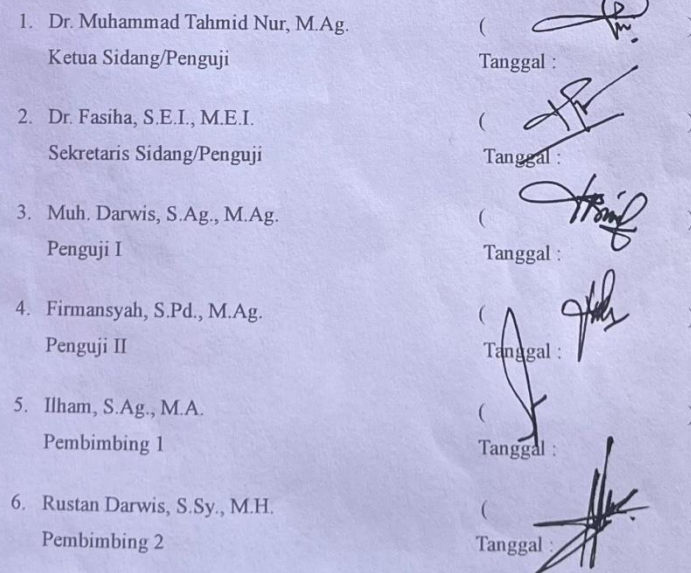 1. Dr. Muhammad Tahmid Nur, M.Ag. ( )
Ketua Sidang/Penguji Tanggal :
2. Dr. Fasiha, S.E.I., M.E.I. ( )
Sekretaris Sidang/Penguji Tanggal :
3. Muh. Darwis, S.Ag., M.Ag. ( )
Penguji I Tanggal :
4. Firmansyah, S.Pd., M.Ag. (
Penguji II Tanggal :
5. Ilham, S.Ag., M.A. ( )
Pembimbing 1 Tanggal :
6. Rustan Darwis, S.Sy., M.H. ( )
Pembimbing 2 Tanggal :